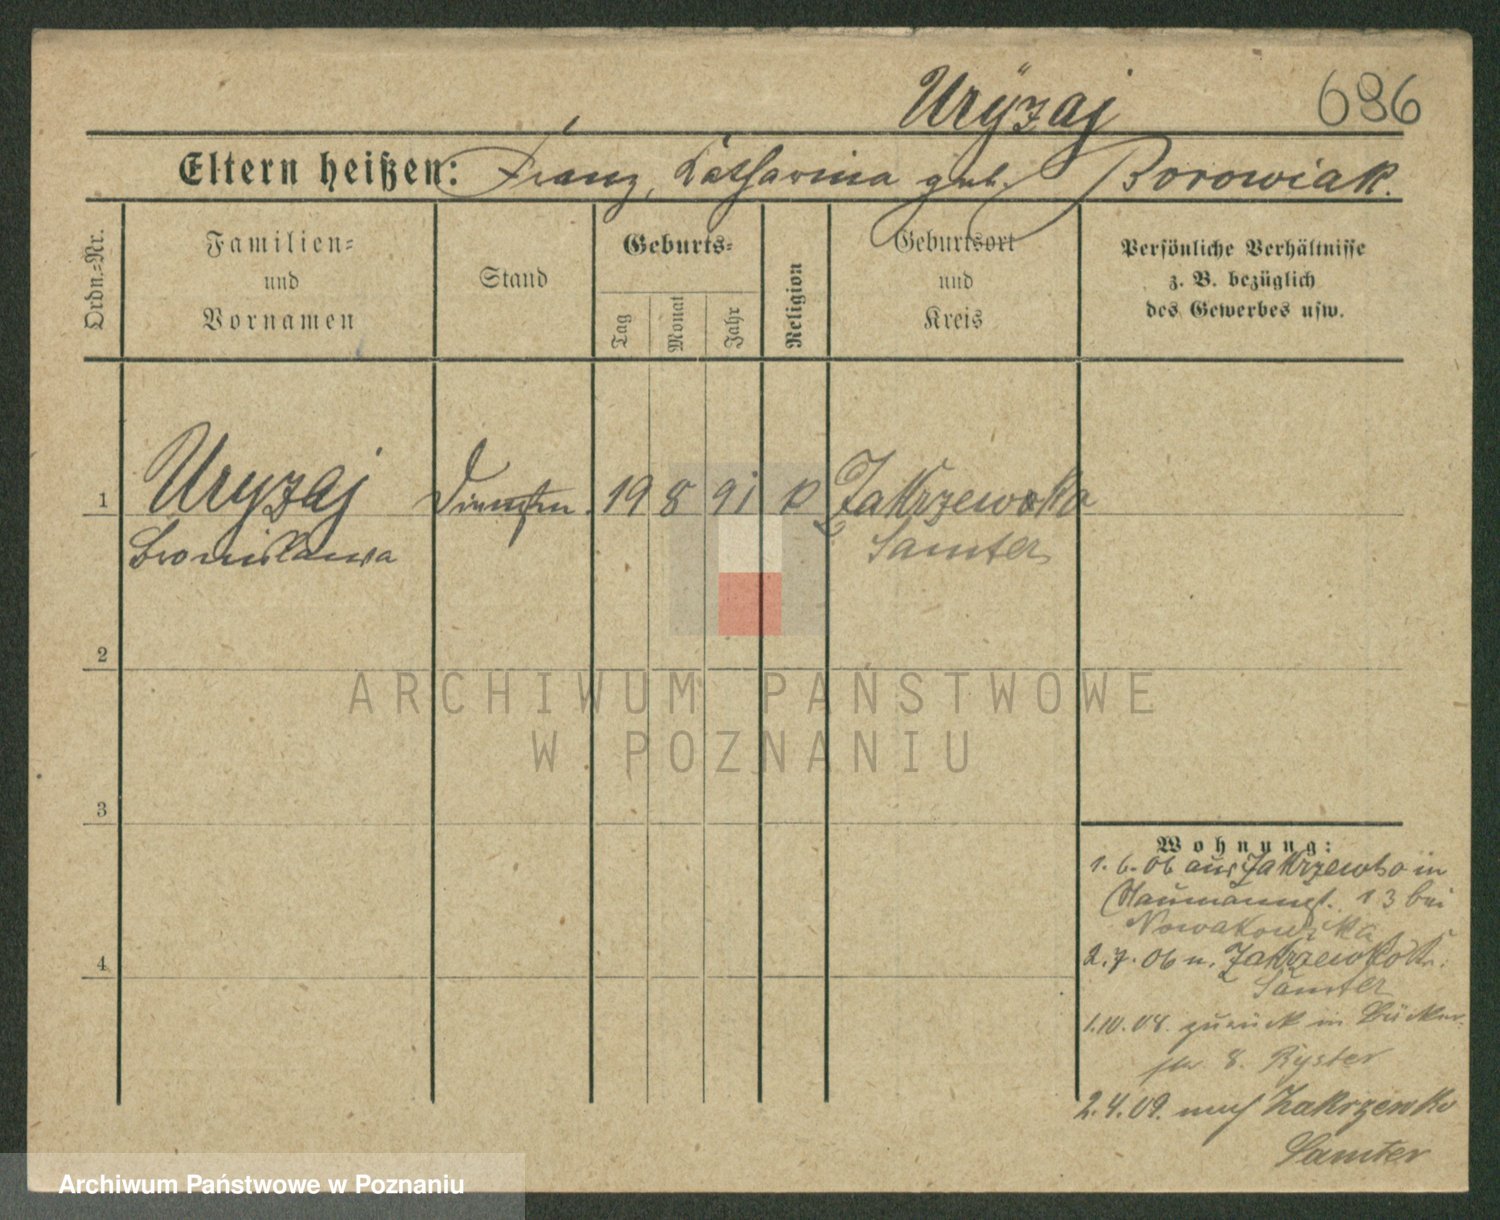 Uryzaj 686
Eltern heißen: Franz, Katharina geb. Borowiak.
Ordn.=Nr.
Familien=
und
Vornamen
Stand
Geburts=
Tag
Monat
Jahr
Religion
Geburtsort
und
Kreis
Persönliche Verhältnisse
z. B. bezüglich
des Gewerbes usw.
1 Uryzaj Dienstm. 19 8 91 k Zakrzewska
Bronislawa Samter
2
ARCHIWUM PAŃSTWOWE
W POZNANIU
3
Wohnung:
1. 6. 06 aus Zakrzewko in
Naumannst. 13 bei
Nowakowska
4
2. 7. 06 n. Zakrzewko Kr.
Samter
1.10.08. zurück in Bäcker-
str 8. Ryster
2. 4. 09. nach Zakrzewko
Samter
Archiwum Państwowe w Poznaniu